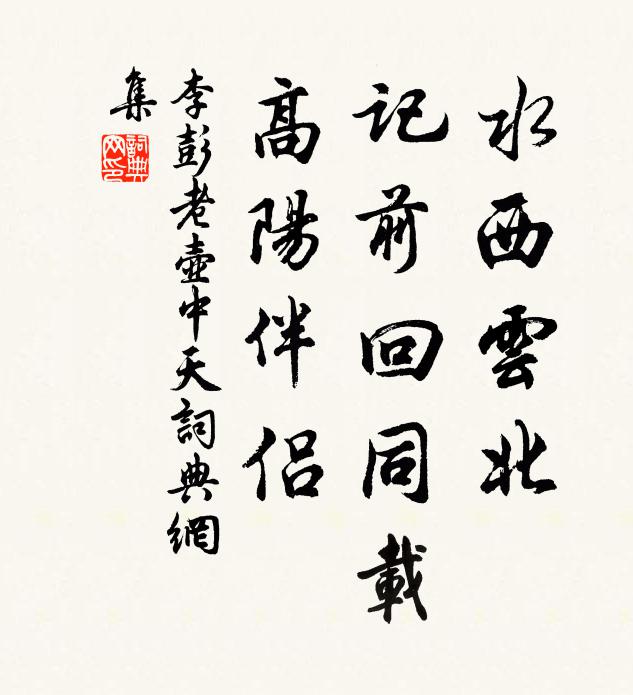 水西雲北
記前回同載
高陽伴侶
李彭老壺中天詞典網
集
詞典
網印